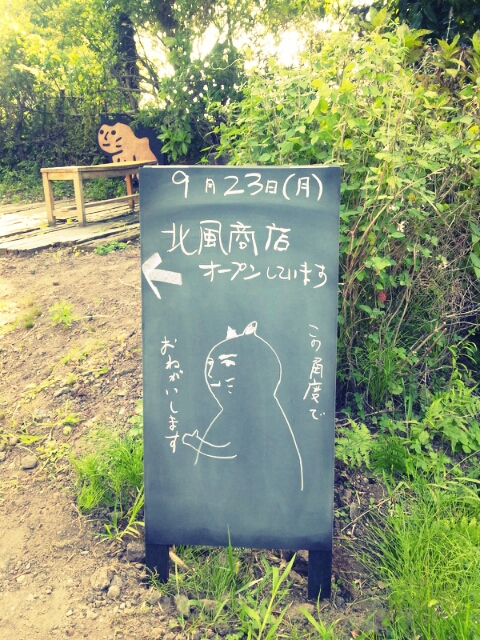 9月23日(月)
北風商店
オープンしています
この角度で
おねがいします